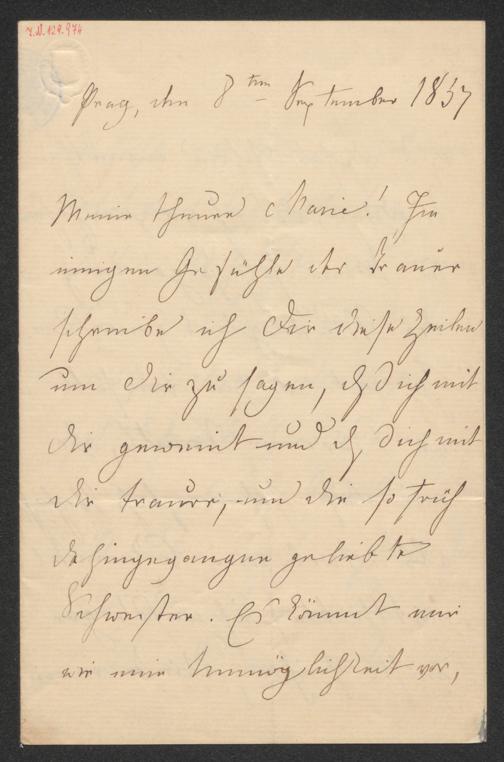 I.N. 129.974
Prag, den 8ten September 1857
Meine theure Marie! Im
innigen Gefühle der Trauer
schreibe ich Dir diese Zeilen
um Dir zu sagen, dß ich mit
Dir geweint und dß ich mit
Dir traure, um die so früh
dahingegangne geliebte
Schwester. Es kömmt mir
wie eine Unmöglichkeit vor,